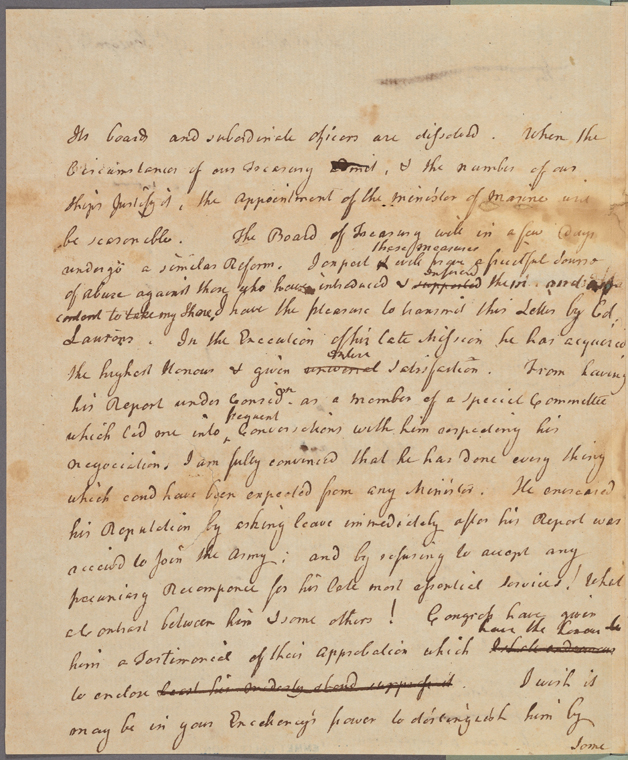 Its board and subordinate officers are dissolved. When the
Circumstances of our Treasury admit, & the number of our
ships Justify it, the appointment of the minister of Marine will
be seasonable. The Board of Treasury will in a few Days
these measures
undergo a similar Reform. I expect will prove a fruitful source
Insured
of abuse against those who have introduced & supported them. and
content to take my share, I have the pleasure to transmit this Letter by Col.
Laurens. In the Execution of his late Mission he has acquired
entire
the highest Honour & given universal Satisfaction. From having
his Report under Considon. as a member of a Special Committee
frequent
which led me into Conversations with him respecting his
negociations, I am fully convinced that he has done every thing
which coud have been expected from any Minister. He encreased
his Reputation by asking leave immediately after his Report was
acceivd to Join the Army; and by refusing to accept any
pecuniary Recompence for his late most essential Services! What
a Contrast between him & some others! Congress have given
have the honour to
him a Testimonial of their approbation which
to enclose least his modesty shoud suppress it. I wish it
may be in your Excellency's power to distinguish him by
some